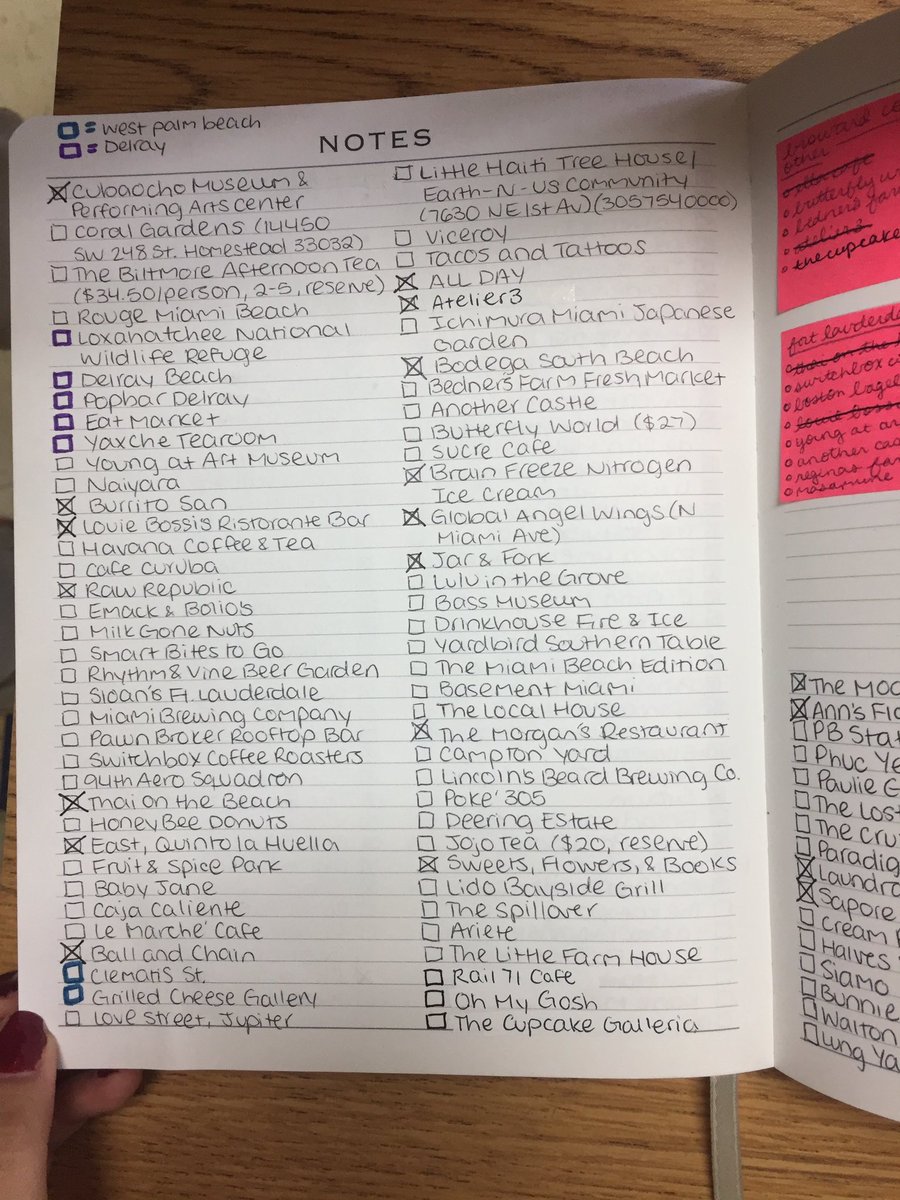 = West palm beach
= Delray
NOTES
Cubaocho Museum &
Performing Arts Center
Coral Gardens (14450
SW 248 St. Homestead 33032)
The Biltmore Afternoon Tea
($34.50/person, 2-5, reserve)
Rouge Miami Beach
Loxahatchee National
Wildlife Refuge
Delray Beach
Popbar Delray
Eat Market
Yaxche Tearoom
Young at Art Museum
Naiyara
Burrito San
Louie Bossi's Ristorante Bar
Havana Coffee & Tea
Cafe Curuba
Raw Republic
Emack & Bolio's
Milk Gone Nuts
Smart Bites to Go
Rhythm & Vine Beer Garden
Sloan's Ft. Lauderdale
Miami Brewing Company
Pawn Broker Rooftop Bar
Switchbox Coffee Roasters
94th Aero Squadron
Thai on the Beach
Honey Bee Donuts
East, Quinto la Huella
Fruit & Spice Park
Baby Jane
Caja Caliente
Le Marche' Cafe
Ball and Chain
Clematis St.
Grilled Cheese Gallery
Love Street, Jupiter
Little Haiti Tree House/
Earth-N-Us Community
(7630 NE 1st Av) (3057540000)
Viceroy
Tacos and Tattoos
ALL DAY
Atelier3
Ichimura Miami Japanese
Garden
Bodega South Beach
Bedners Farm Fresh Market
Another Castle
Butterfly World ($27)
Sucre Cafe
Brain Freeze Nitrogen
Ice Cream
Global Angel Wings (N
Miami Ave)
Jar & Fork
Lulu in the Grove
Bass Museum
Drinkhouse Fire & Ice
Yardbird Southern Table
The Miami Beach Edition
Basement Miami
The Local House
The Morgan's Restaurant
Campton Yard
Lincoln's Beard Brewing Co.
Poke' 305
Deering Estate
Jojo Tea ($20, reserve)
Sweets, Flowers, & Books
Lido Bayside Grill
The Spillover
Ariete
The Little Farm House
Rail 71 Cafe
Oh My Gosh
The Cupcake Galleria
other
butterfly
thecupcake
thai on the
switchbox
boston bagel
young at
another
masamune
The
Ann's
PB
Phuc
Paulie
The
The
Sapore
Cream
Halves
Siamo
Bunnie
Walton
Lung